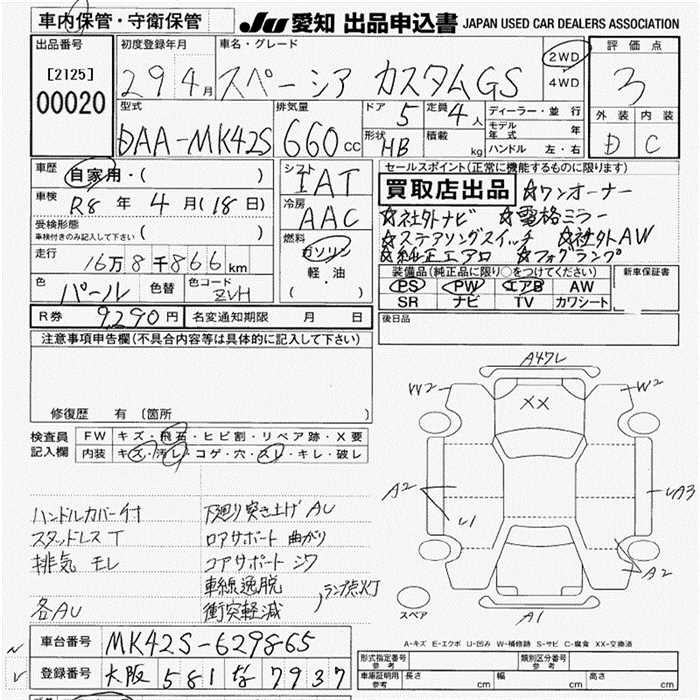 車内保管・守衛保管
JU 愛知 出品申込書 JAPAN USED CAR DEALERS ASSOCIATION
出品番号
[2125]
00020
初度登録年月
29 4月
車名・グレード
スペーシア カスタムGS
2WD
4WD
評価点
3
外装 内装
D C
型式
DAA-MK42S
排気量
660cc
ドア 5
定員 4人
形状 HB
積載 kg
ディーラー・並行
モデル年式 年
ハンドル 左・右
車歴
自家用・( )
車検
R8 年 4 月(18日)
受検形態
車検付きのみ記入して下さい ( )
走行
16万8千866km
色 パール 色替
色コード ZVH
シフト
IAT
冷房
AAC
燃料
ガソリン
軽・油
( )
セールスポイント(正常に機能するものに限ります)
買取店出品 ☆ワンオーナー
☆社外ナビ ☆電格ミラー
☆ステアリングスイッチ ☆社外AW
☆純正エアロ ☆フォグランプ
装備品(純正品に限り○をつけてください)
PS PW エアB AW
SR ナビ TV カワシート
新車保証書
R券 9,290円
名変通知期限 月 日
後日品
注意事項申告欄(不具合内容等は具体的に記入して下さい)
修復歴 有(箇所 )
検査員記入欄
FW キズ・飛石・ヒビ割・リペア跡・X要
内装 キズ・汚レ・コゲ・穴・スレ・キレ・破レ
ハンドルカバー付 下廻り突き上げ AU
スタッドレスT ロアサポート 曲がり
排気 モレ コアサポート シワ
車線逸脱
各AU 衝突軽減
ランプ点灯
A47L
W2 W2
XX
A2 U1
UA3
A2
A1
スペア
A-キズ E-エクボ U-凹み W-補修跡 S-サビ C-腐食 XX-交換済
車台番号 MK42S-629865
登録番号 大阪 581 な 7937
形式指定番号 参考
類別区分番号 参考
車庫証明用 参考
長さ cm
幅 cm
高さ cm